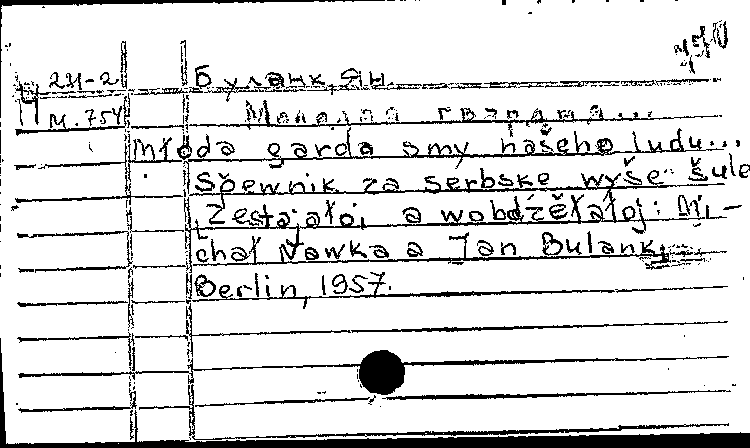 2Н-2 Буланк, Ян.
М.754 Молодая гвардия...
Młoda garda smy našeho ludu...
Spěwnik za serbske wyše šule
Zestajałoj a wobdźěłałoj: Mi-
chał Nawka a Jan Bulank.
Berlin, 1957.